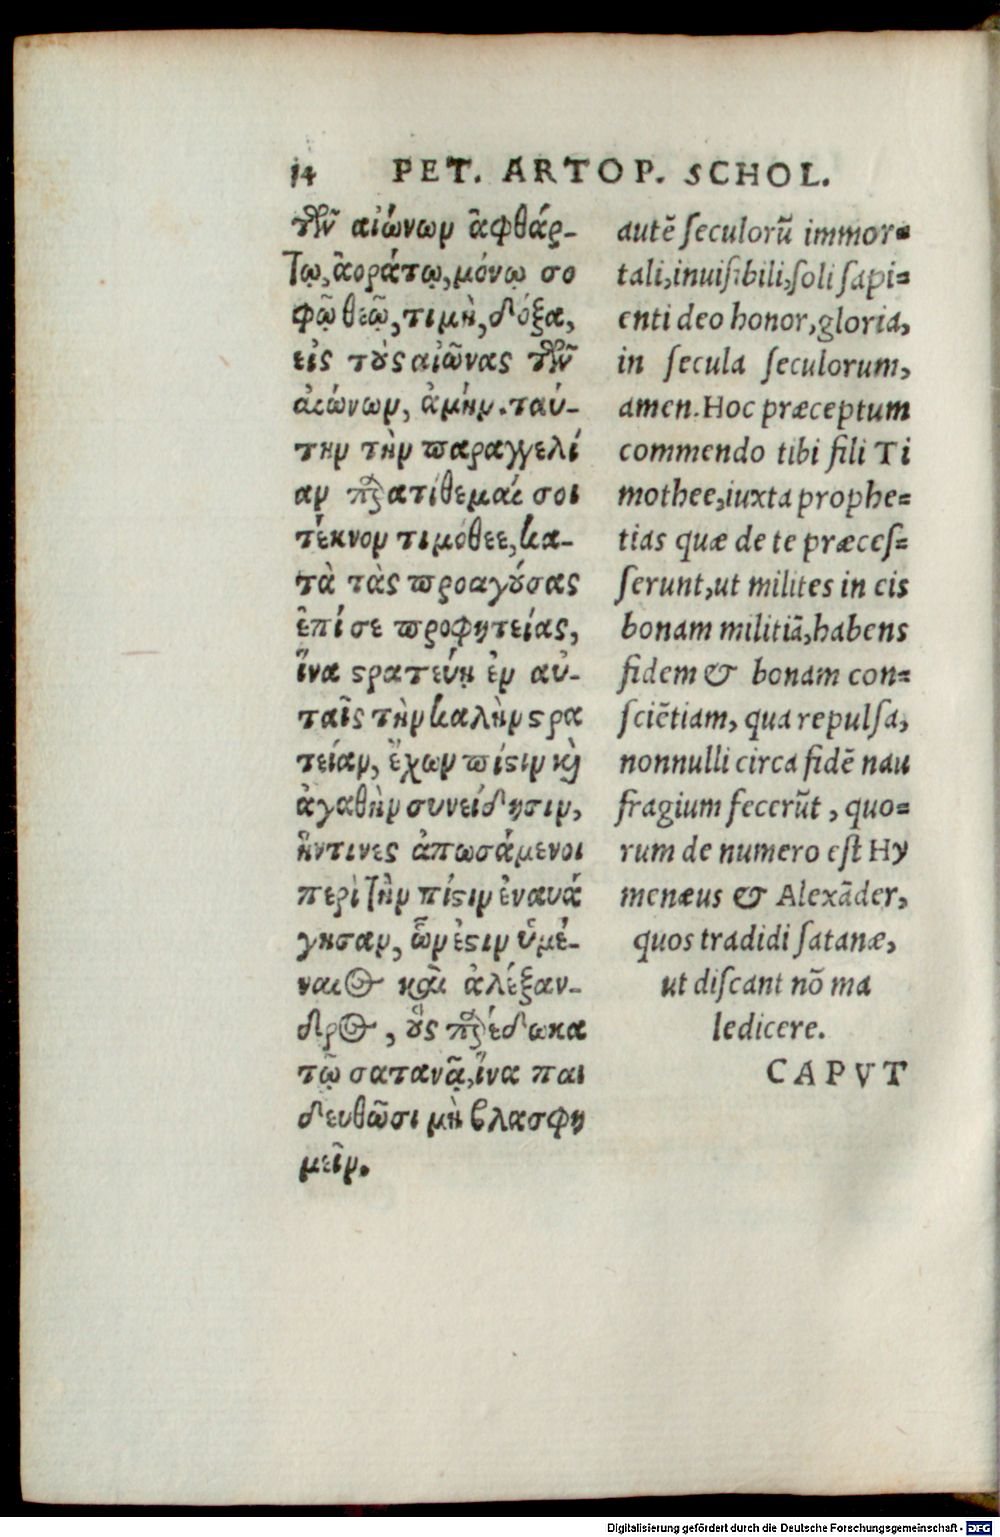 14 PET. ARTOP. SCHOL.
τῶν αἰώνων ἀφθάρ-
τῳ, ἀοράτῳ, μόνῳ σο
φῷ θεῷ, τιμὴ, δόξα,
εἰς τοὺς αἰῶνας τῶν
αἰώνων, ἀμήν. ταύ-
την τὴν παραγγελί
αν παρατίθεμαί σοι
τέκνον τιμόθεε, κα-
τὰ τὰς προαγούσας
ἐπί σε προφητείας,
ἵνα στρατεύῃ ἐν αὐ-
ταῖς τὴν καλὴν στρα
τείαν, ἔχων πίστιν καὶ
ἀγαθὴν συνείδησιν,
ἥντινες ἀπωσάμενοι
περὶ τὴν πίστιν ἐναυά
γησαν, ὧν ἐστιν ὑμέ-
ναιος καὶ ἀλέξαν-
δρος, οὓς παρέδωκα
τῷ σατανᾷ, ἵνα παι
δευθῶσι μὴ βλασφη
μεῖν.
autē seculorū immor=
tali, inuisibili, soli sapi=
enti deo honor, gloria,
in secula seculorum,
amen. Hoc præceptum
commendo tibi fili Ti
mothee, iuxta prophe=
tias quæ de te præces=
serunt, ut milites in eis
bonam militiā, habens
fidem & bonam con=
sciētiam, qua repulsa,
nonnulli circa fidē nau
fragium fecerūt, quo=
rum de numero est Hy
menæus & Alexāder,
quos tradidi satanæ,
ut discant nō ma
ledicere.
CAPVT
Digitalisierung gefördert durch die Deutsche Forschungsgemeinschaft - DFG